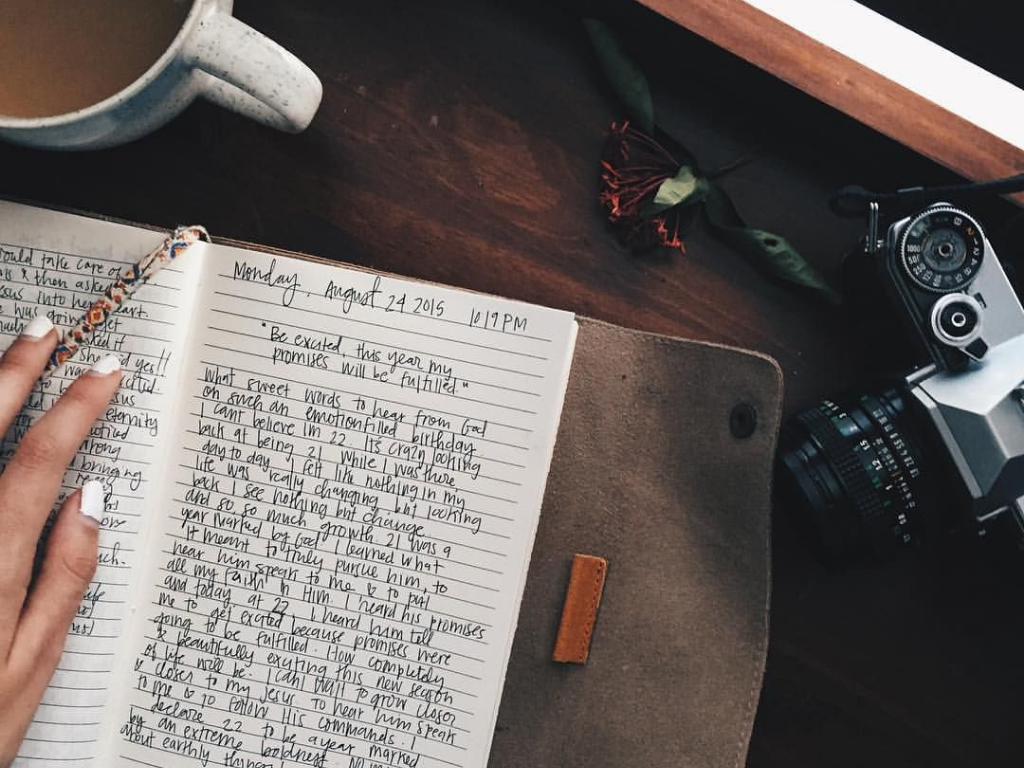 ould take care of
& then asked
sus into her heart.
e was going get
she said yes!!
was
Jesus
eternity
strong
bringing
more
Monday, August 24 2015 10:19 PM
"Be excited, this year my
promises will be fulfilled"
What sweet words to hear from God
on such an emotionfilled birthday.
I cant believe im 22. Its crazy looking
back at being 21. While I was there
day to day I felt like nothing in my
life was really changing but looking
back I see nothing but change
and so so much growth. 21 was a
year marked by God. I learned what
it meant to truly pursue him, to
hear him speak to me & to put
all my faith in Him. I heard his promises
and today at 22 I heard him tell
me to get excited because promises were
going to be fulfilled. How completely
& beautifully exciting this new season
of life will be. I cant wait to grow closer
& closer to my Jesus, to hear him speak
to me & to follow His commands. I
declare 22 to be a year marked
by an extreme boldness.
about earthly things